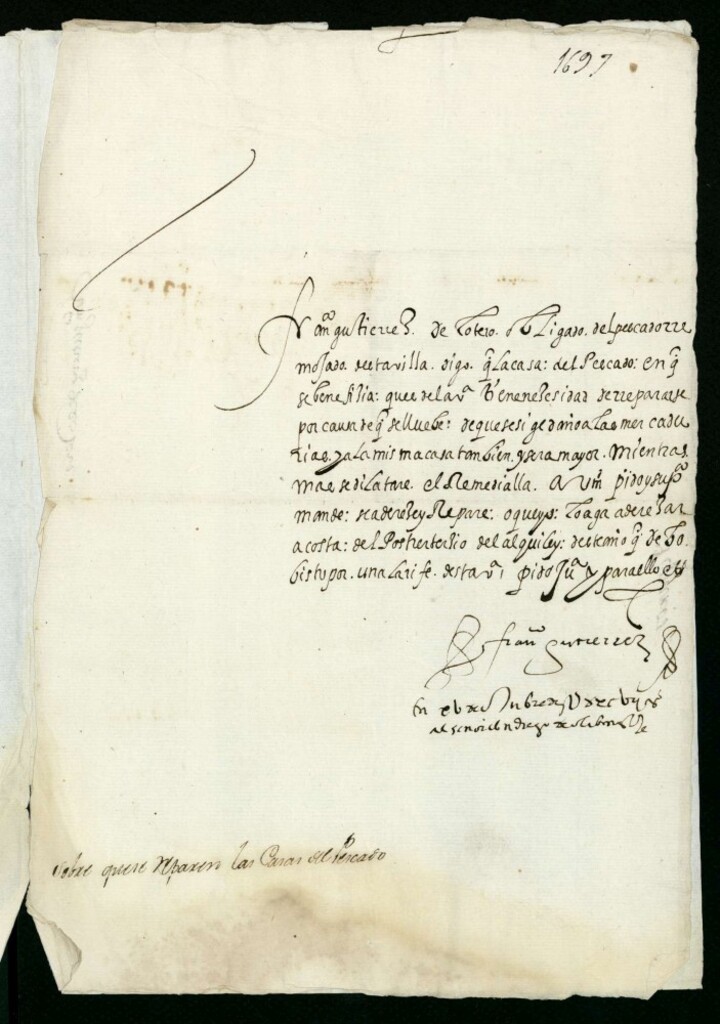 1697
franco gutierrez. de Sotero. obligado. del pescado rre
mojado. desta villa. digo. q la casa: del Pescado: en q
se benefisia: que es de la va tiene nesesidad de rrepararse
por causa de q se lluebe: de que se sige daño a las mercadu
rias. y a la misma casa tambien. y sera mayor. mientras
mas se dilatare. el Remedialla. A Vm pido y supco
mande: se aderese y Repare: o que yo. lo aga aderesar
a costa: del Postrer tersio del alquiler: deste año q debo
bisto por. un alarife. desta va pido Jua y para ello etta
franco gutierrez
En
al señor
Sobre que se rreparen las Casas del Pescado